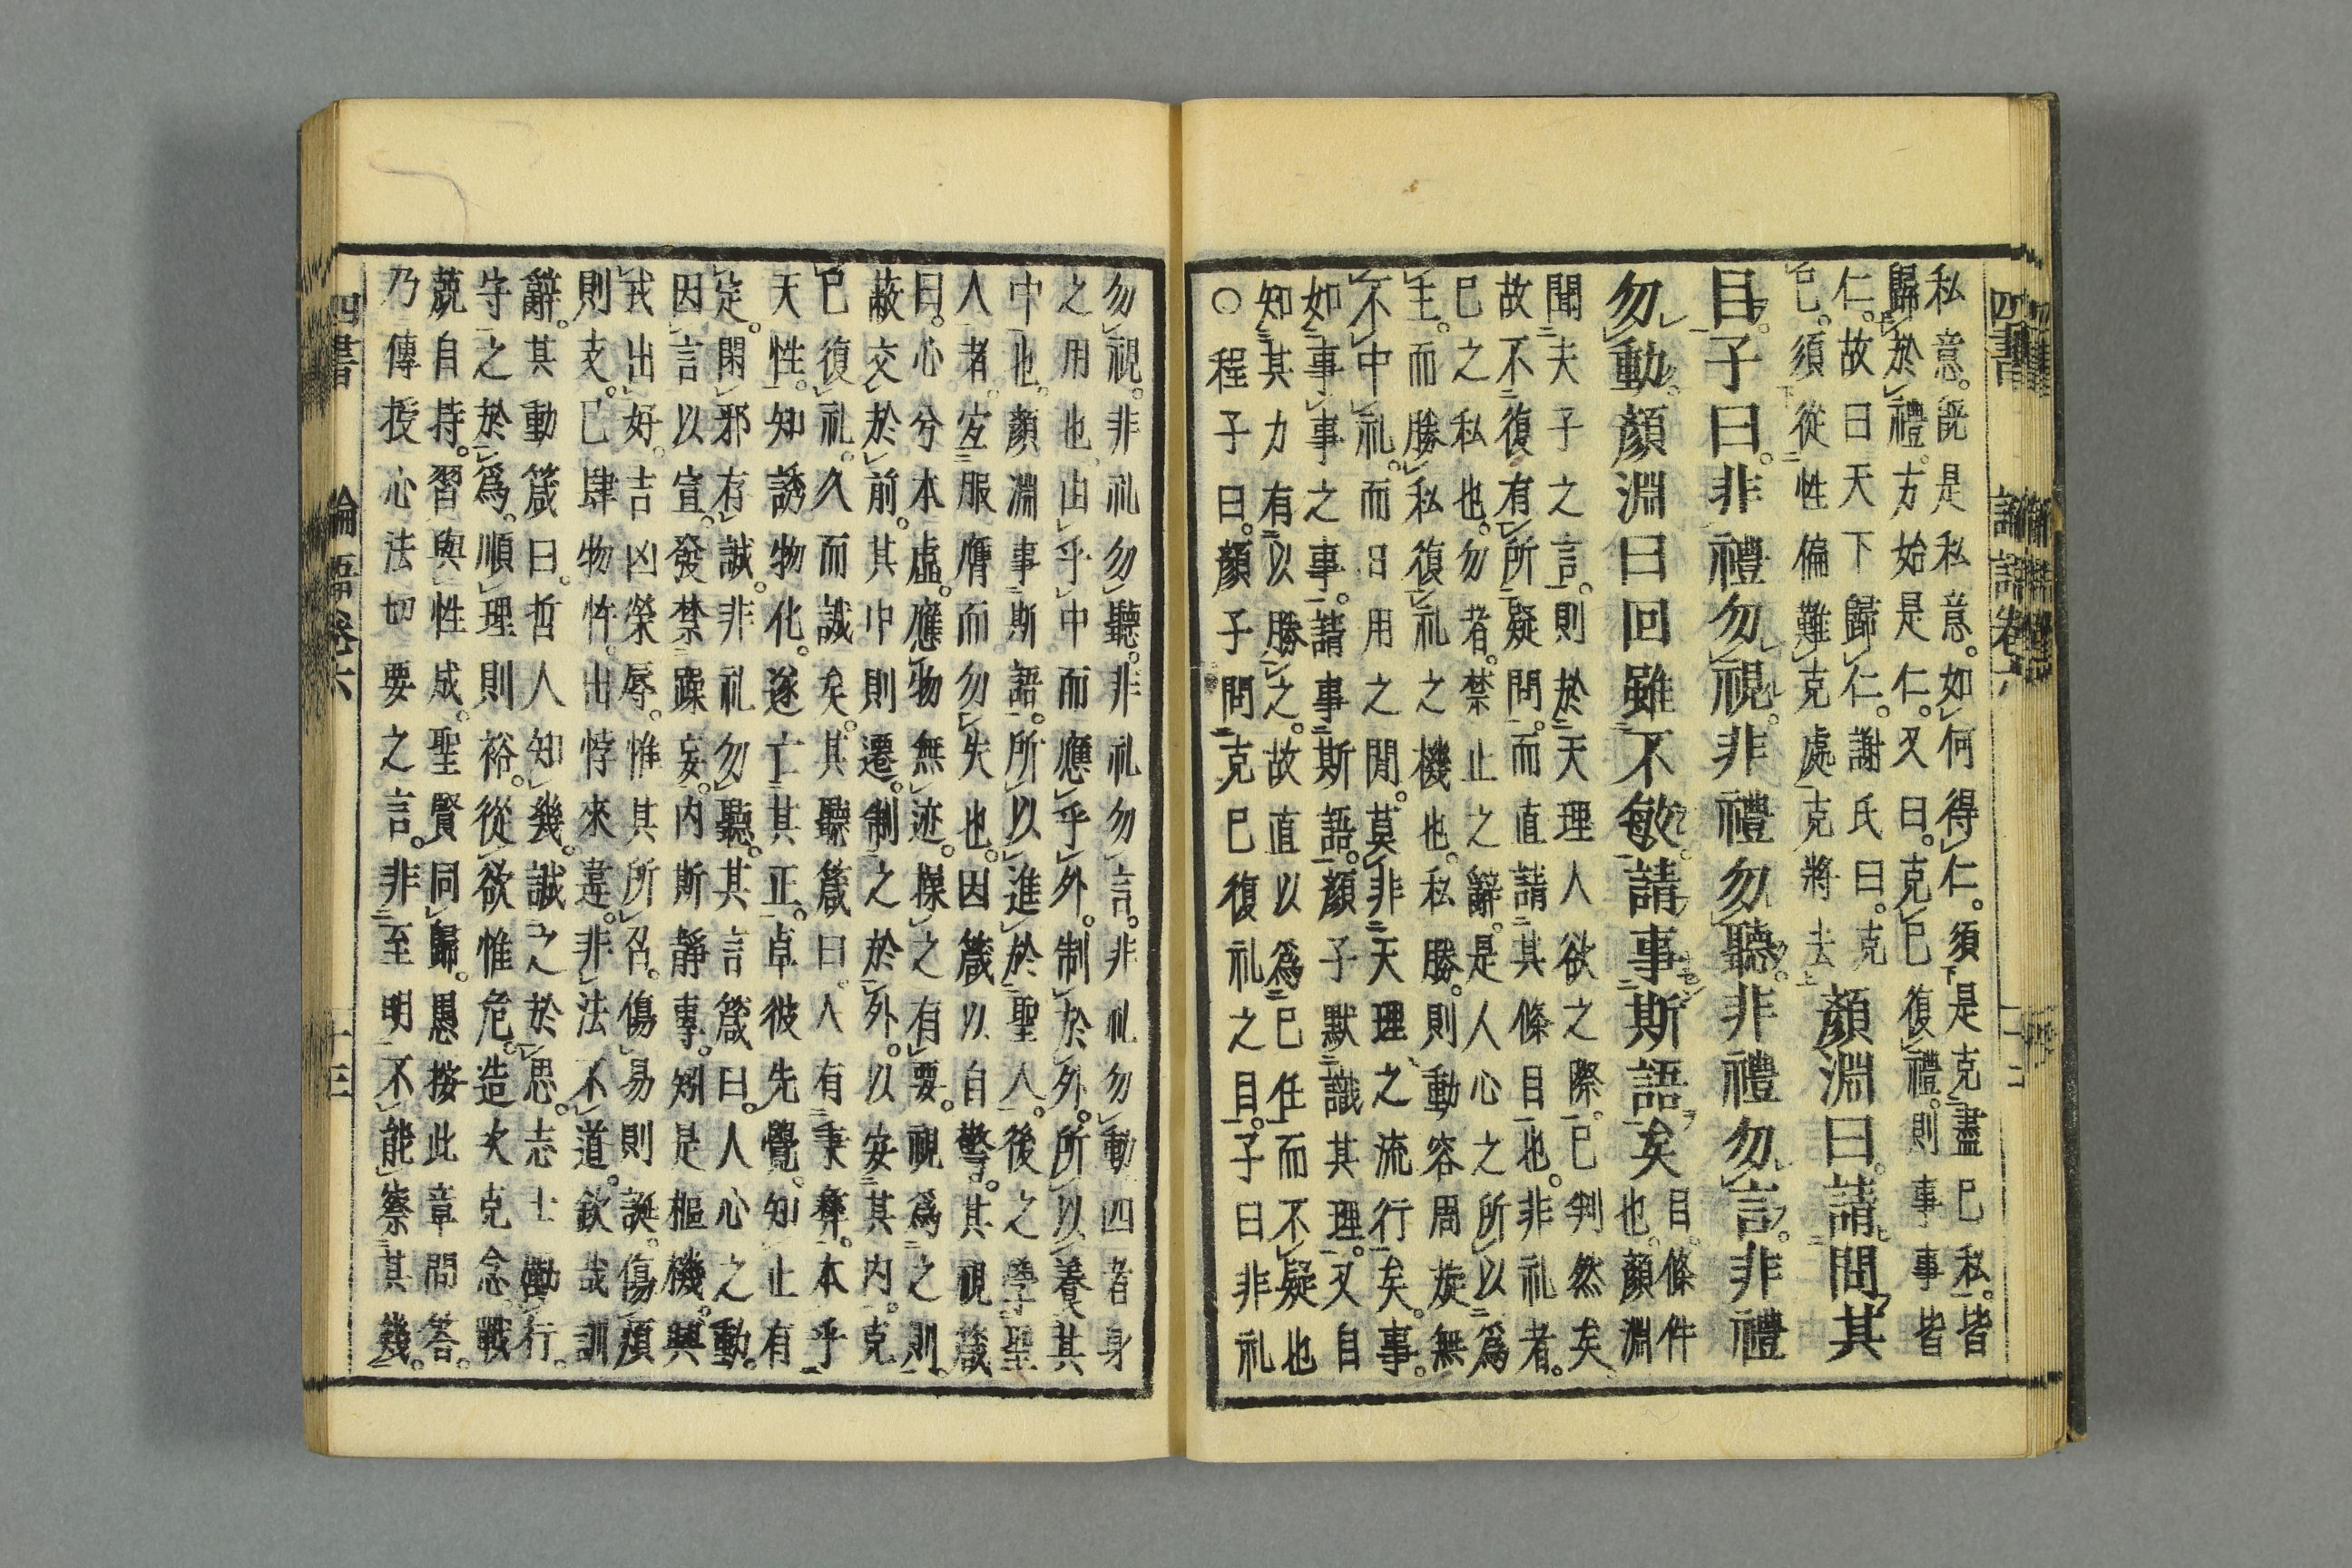 私意。既是私意。如何得仁。須是克盡己私。皆
歸於禮。方始是仁。又曰。克己復禮。則事事皆
仁。故曰天下歸仁。謝氏曰。克
己。須從性偏難克處克將去
顏淵曰。請問其
目。子曰。非禮勿視。非禮勿聽。非禮勿言。非禮
勿動。顏淵曰回雖不敏。請事斯語矣
目。條件
也。顏淵
聞夫子之言。則於天理人欲之際。已判然矣。
故不復有所疑問。而直請其條目也。非礼者。
己之私也。勿者。禁止之辭。是人心之所以為
主。而勝私復礼之機也。私勝。則動容周旋無
不中礼。而日用之間。莫非天理之流行矣。事。
如事事之事。請事斯語。顏子默識其理。又自
知其力有以勝之。故直以為己任而不疑也
○程子曰。顏子問克己復礼之目。子曰非礼
勿視。非礼勿聽。非礼勿言。非礼勿動四者身
之用也。由乎中而應乎外。制於外。所以養其
中也。顏淵事斯語。所以進於聖人。後之學聖
人者。宜服膺而勿失也。因箴以自警。其視箴
曰。心兮本虛。應物無迹。操之有要。視為之則。
蔽交於前。其中則遷。制之於外。以安其内。克
己復礼。久而誠矣。其聽箴曰。人有秉彝。本乎
天性。知誘物化。遂亡其正。卓彼先覺。知止有
定。閑邪存誠。非礼勿聽。其言箴曰。人心之動。
因言以宣。發禁躁妄。内斯靜專。矧是樞機。興
戎出好。吉凶榮辱。惟其所召。傷易則誕。傷煩
則支。己肆物忤。出悖來違。非法不道。欽哉訓
辭。其動箴曰。哲人知幾。誠之於思。志士勵行。
守之於為。順理則裕。從欲惟危。造次克念。戰
兢自持。習與性成。聖賢同歸。愚按此章問答。
乃傳授心法切要之言。非至明不能察其幾。
四書 論語卷六 十三